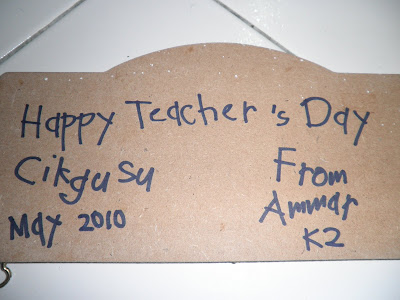 Happy Teacher's Day
Cikgu Su
May 2010
From
Ammar
K2